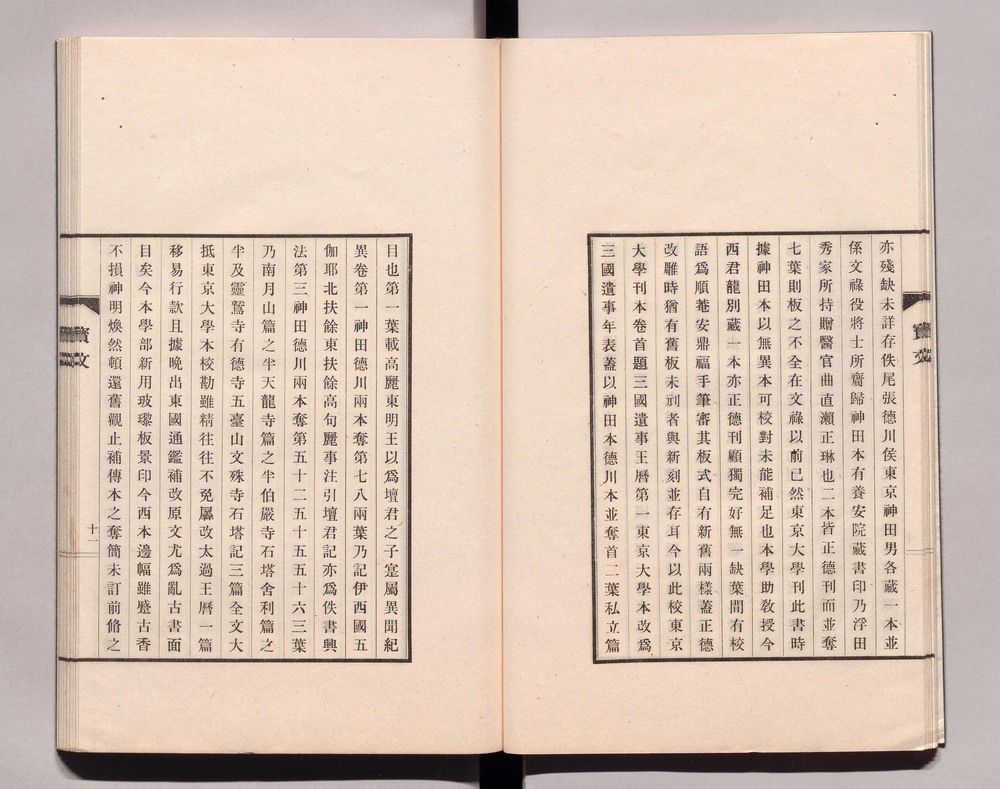 亦殘缺未詳存佚尾張德川侯東京神田男各藏一本並
係文祿役將士所齎歸神田本有養安院藏書印乃浮田
秀家所持贈醫官曲直瀨正琳也二本皆正德刊而並奪
七葉則板之不全在文祿以前已然東京大學刊此書時
據神田本以無異本可校對未能補足也本學助敎授今
西君龍別藏一本亦正德刊顧獨完好無一缺葉間有校
語爲順菴安鼎福手筆審其板式自有新舊兩樣蓋正德
改雕時猶有舊板未刓者與新刻並存耳今以此校東京
大學刊本卷首題三國遺事王曆第一東京大學本改爲
三國遺事年表蓋以神田本德川本並奪首二葉私立篇
目也第一葉載高麗東明王以爲壇君之子寔屬異聞紀
異卷第一神田德川兩本奪第七八兩葉乃記伊西國五
伽耶北扶餘東扶餘高句麗事注引壇君記亦爲佚書興
法第三神田德川兩本奪第五十二五十五五十六三葉
乃南月山篇之半天龍寺篇之半伯嚴寺石塔舍利篇之
半及靈鷲寺有德寺五臺山文殊寺石塔記三篇全文大
抵東京大學本校勘雖精往往不免屬改太過王曆一篇
移易行款且據晚出東國通鑑補改原文尤爲亂古書面
目矣今本學部新用玻瓈板景印今西本邊幅雖蹙古香
不損神明煥然頓還舊觀止補傳本之奪簡未訂前脩之
十一